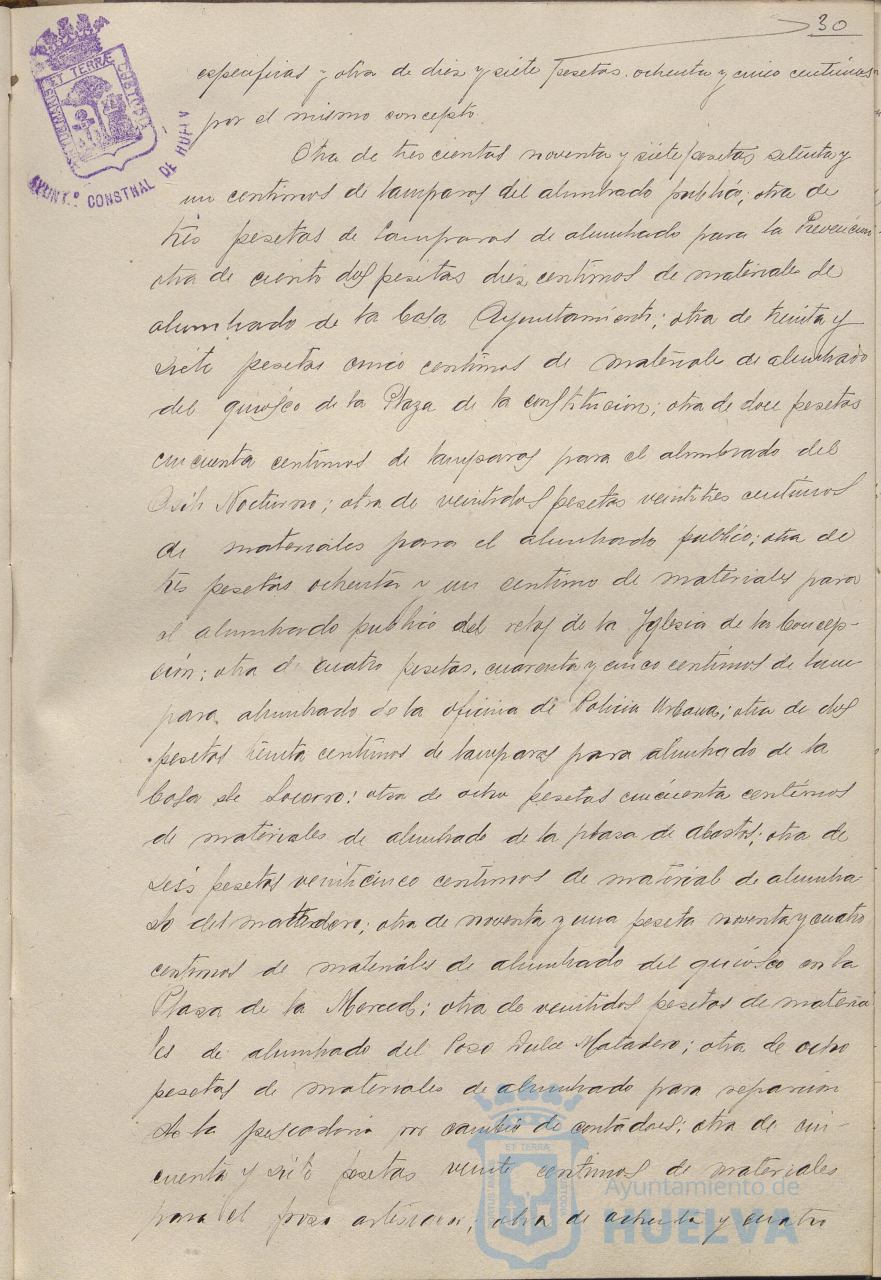 30
ET TERRÆ
CUSTODIA
AYUNT.º CONSTNAL DE HUELV
especificas y otra de diez y siete pesetas ochenta y cinco centimos
por el mismo concepto.
Otra de trescientas noventa y siete pesetas setenta y
un centimos de lamparas del alumbrado publico; otra de
tres pesetas de lamparas de alumbrado para la Prevencion
otra de ciento dos pesetas diez centimos de materiales de
alumbrado de la Casa Ayuntamiento; otra de treinta y
siete pesetas cinco centimos de materiale de alumbrado
del quiosco de la Plaza de la Constitucion; otra de doce pesetas
cincuenta centimos de lamparas para el alumbrado del
Asilo Nocturno; otra de veintidos pesetas veintitres centimos
de materiales para el alumbrado publico; otra de
tres pesetas ochenta y un centimo de materiales para
el alumbrado publico del reloj de la Yglesia de la Concep-
cion; otra de cuatro pesetas cuarenta y cinco centimos de lam
para alumbrado de la oficina de Policia Urbana; otra de dos
pesetas treinta centimos de lamparas para alumbrado de la
Casa de Socorro; otra de ocho pesetas cincuenta centimos
de materiales de alumbrado de la plaza de abastos; otra de
seis pesetas veinticinco centimos de material de alumbra
do del matadero; otra de noventa y una peseta noventa y cuatro
centimos de materiales de alumbrado del quiosco en la
Plaza de la Merced; otra de veintidos pesetas de materia
les de alumbrado del Pozo Dulce Matadero; otra de ocho
pesetas de materiales de alumbrado para reparacion
de la pescaderia por cambio de contadores; otra de cin-
cuenta y siete pesetas veinte centimos de materiales
para el pozo artesiano; otra de ochenta y cuatro
ET TERRÆ
Ayuntamiento de
HUELVA